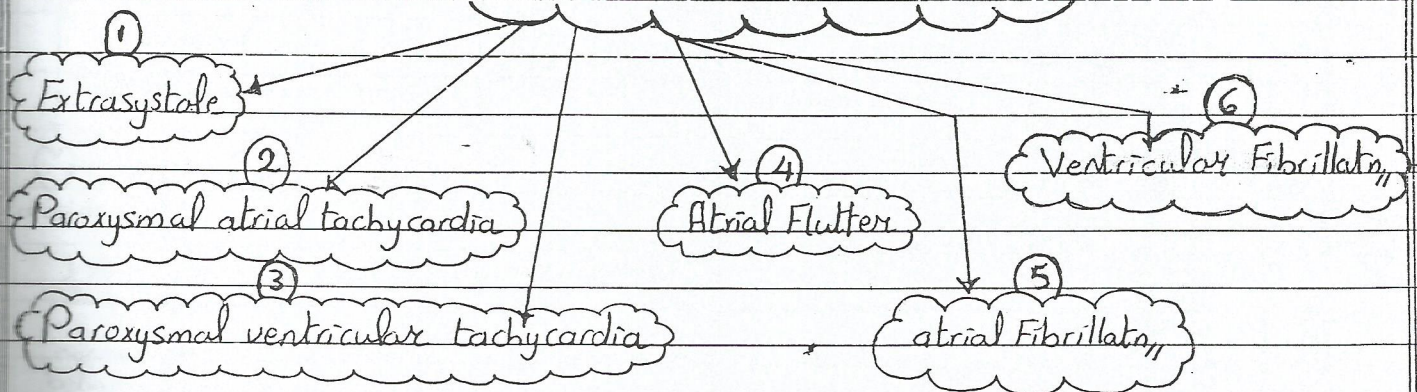 1
Extrasystole
2
Paroxysmal atrial tachycardia
3
Paroxysmal ventricular tachycardia
4
Atrial Flutter
5
atrial Fibrillatn,,
6
Ventricular Fibrillatn,,